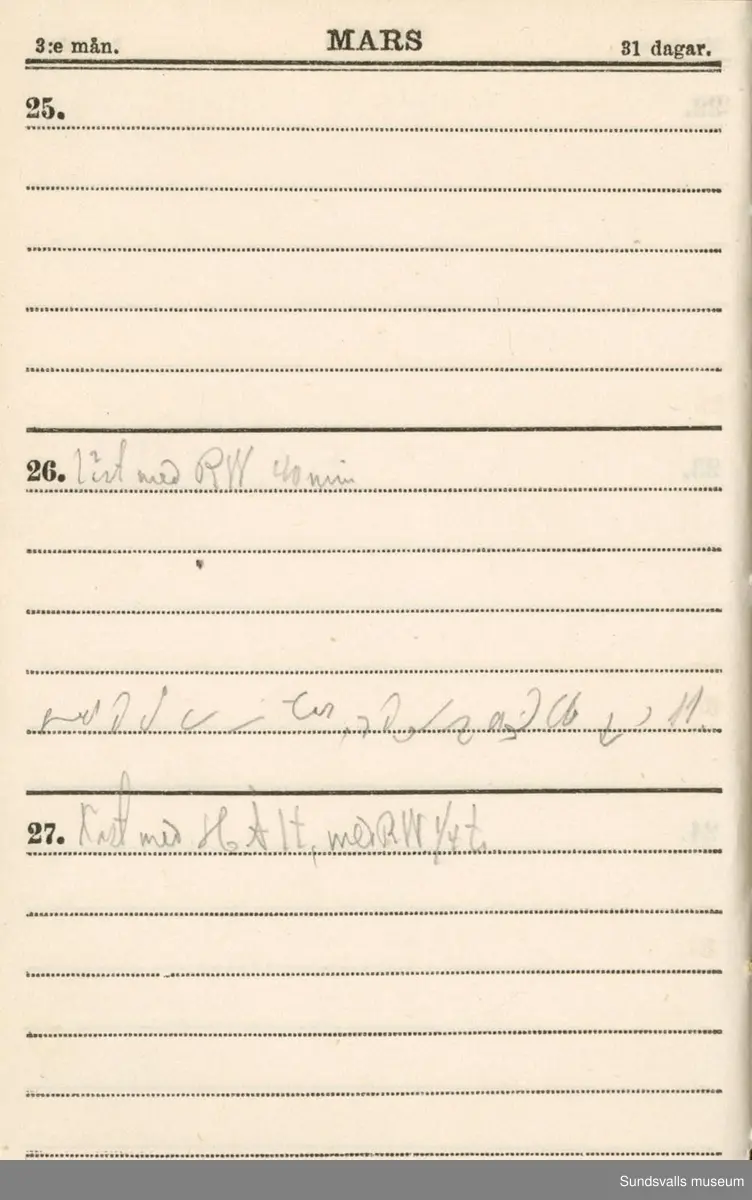 3:e mån. MARS 31 dagar.
25.
26. läst med RW 40 min
27. läst med HÅ 1t, med RW 1/4 t.
Sundsvalls museum